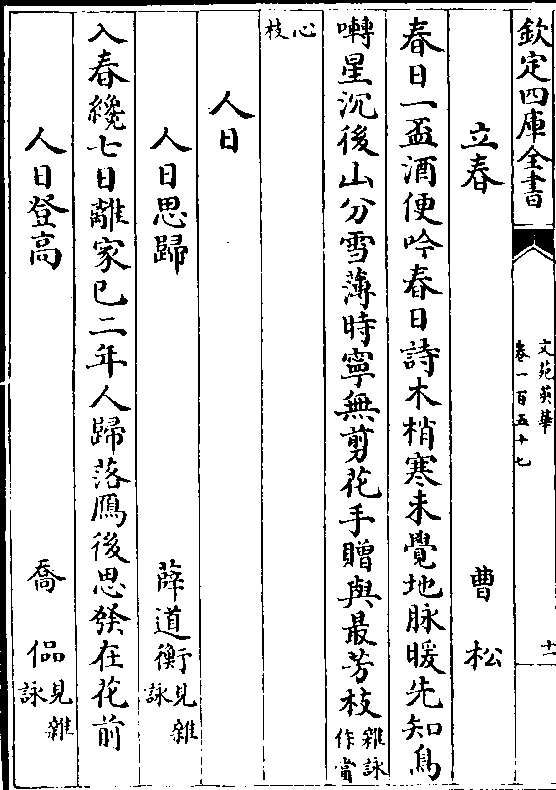 欽定四庫全書
文苑英華
卷一百五十七
十一
立春
曹松
春日一盃酒便吟春日詩木梢寒未覺地脉暖先知鳥
囀星沉後山分雪薄時寧無剪花手贈與最芳枝雜詠
作當
心
枝
人日
人日思歸
薛道衡見雜
詠
入春纔七日離家已二年人歸落鴈後思發在花前
人日登高
喬偘見雜
詠